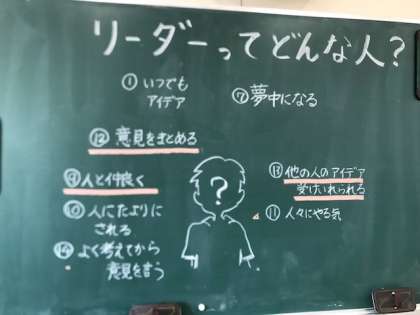 リーダーってどんな人?
①いつでも
アイデア
⑦夢中になる
⑫意見をまとめる
⑨人と仲良く
⑩人にたよりに
される
⑭よく考えてから
意見を言う
?
⑬他の人のアイデア
受けいれられる
⑪人々にやる気